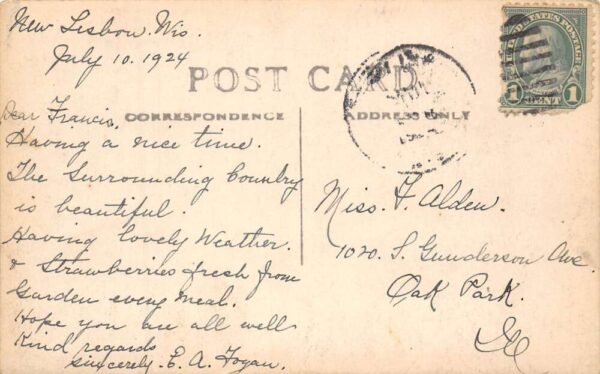 New Lisbon. Wis.
July 10. 1924
POST CARD
CORRESPONDENCE
ADDRESS ONLY
UNITED STATES POSTAGE
1 CENT 1
Dear Francis,
Having a nice time.
The Surrounding Country
is beautiful.
Having lovely Weather.
& Strawberries fresh from
Garden every meal.
Hope you are all well
Kind regards
Sincerely. E. A. Fogan.
Miss. F. Alden.
1020. S. Gunderson Ave.
Oak Park.
Ill